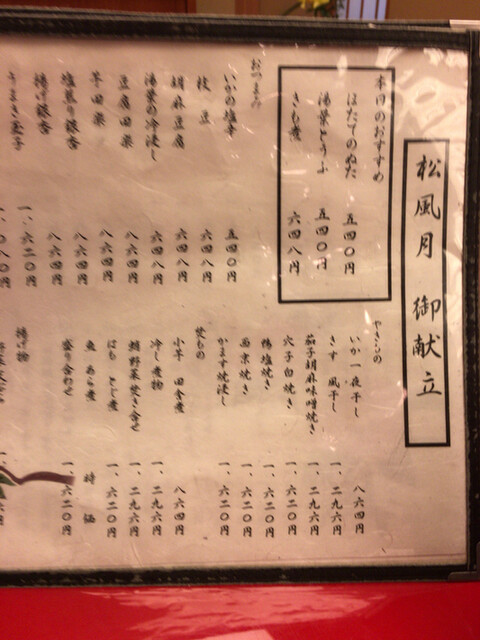 松風月 御献立
本日のおすすめ
はたてのぬた 五四〇円
湯葉とうふ 五四〇円
きも煮 六四八円
おつまみ
いかの塩辛 五四〇円
枝豆 六四八円
胡麻豆腐 六四八円
湯葉の冷浸し 六四八円
豆腐田楽 八六四円
芋田楽 八六四円
塩蒸し銀杏 八六四円
揚げ銀杏 一、六二〇円
うまき玉子 一、〇八〇円
やきもの
いか一夜干し 八六四円
きす 風干し 一、二九六円
茄子胡麻味噌焼き 一、二九六円
穴子白焼き 一、六二〇円
鴨塩焼き 一、六二〇円
西京焼き 一、六二〇円
かます焼浸し 一、六二〇円
焚もの
小芋 田舎煮 八六四円
冷し煮物 一、二九六円
蛸野菜焚き合せ 一、二九六円
はも とじ煮 一、六二〇円
魚 あら煮 時価
盛り合わせ 一、六二〇円
揚げ物